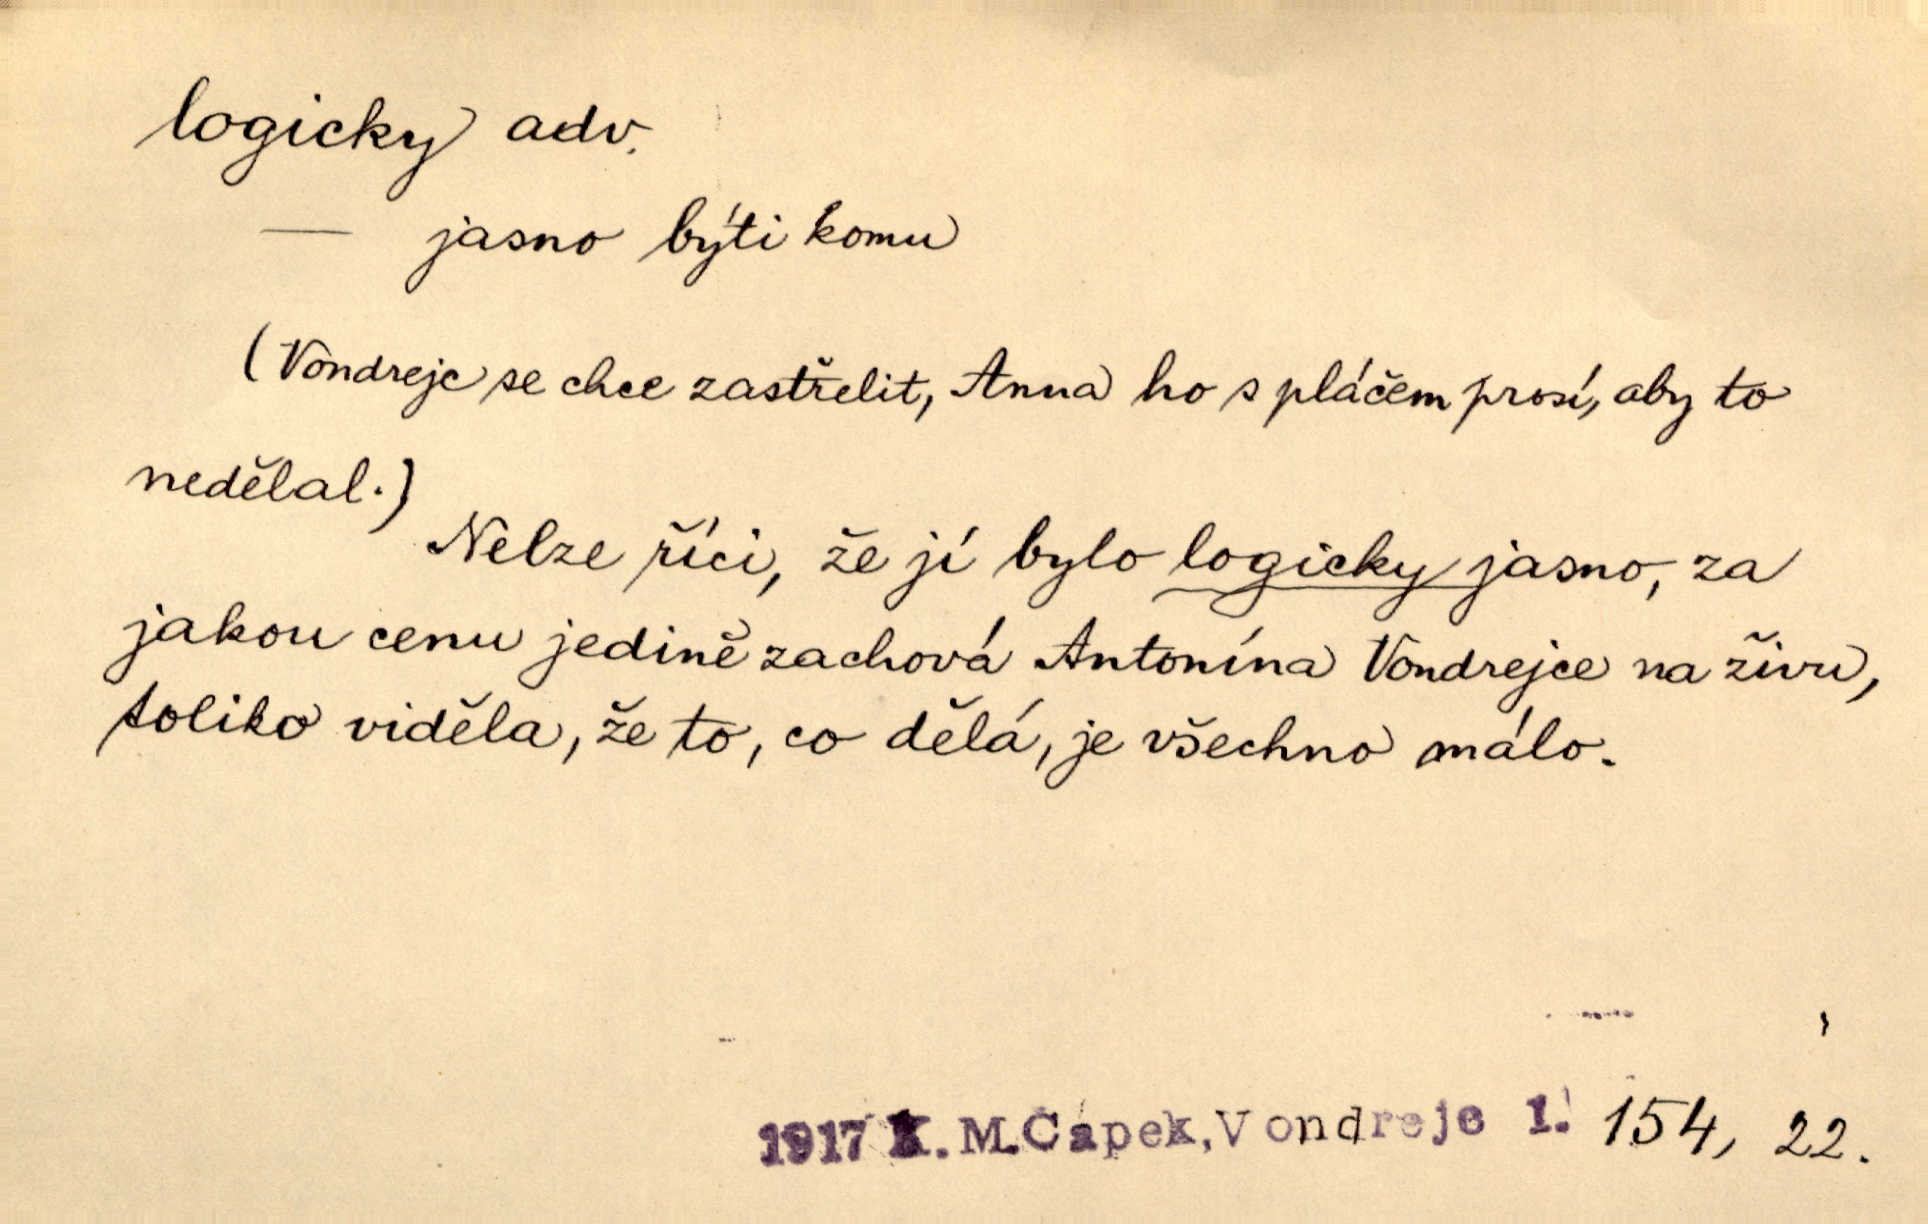 logicky adv.
— jasno býti komu
(Vondrejc se chce zastřelit, Anna ho s pláčem prosí, aby to
nedělal.)
Nelze říci, že jí bylo logicky jasno, za
jakou cenu jedině zachová Antonína Vondrejce na živu,
toliko viděla, že to, co dělá, je všechno málo.
1917 K.M.Čapek,Vondrejc 1. 154, 22.